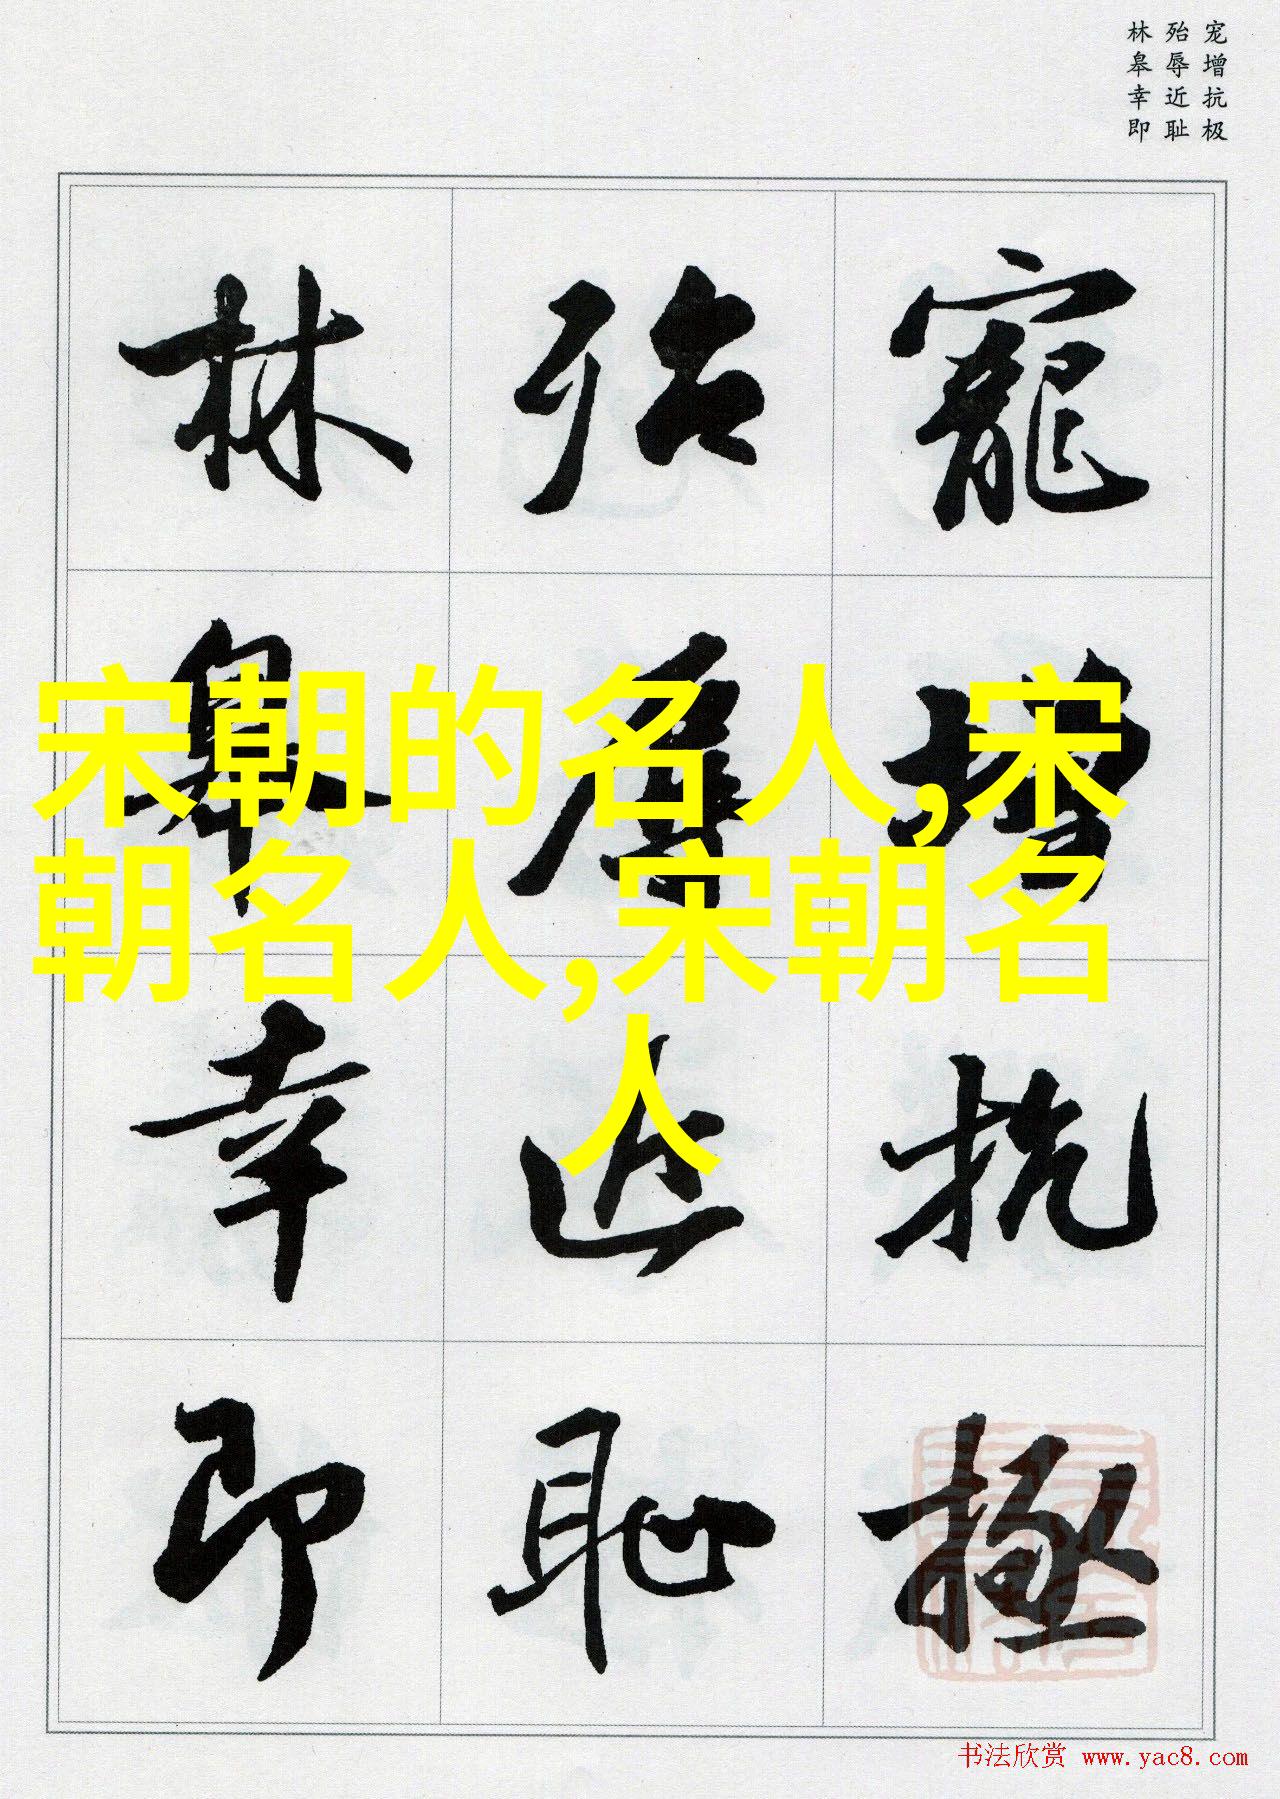 宠增抗极
殆辱近耻
林皋幸即
寵增抗極
殆辱近恥
林皋幸即
宋朝的名人,宋
朝名人,宋朝名
人
书法欣赏 www.yac8.com